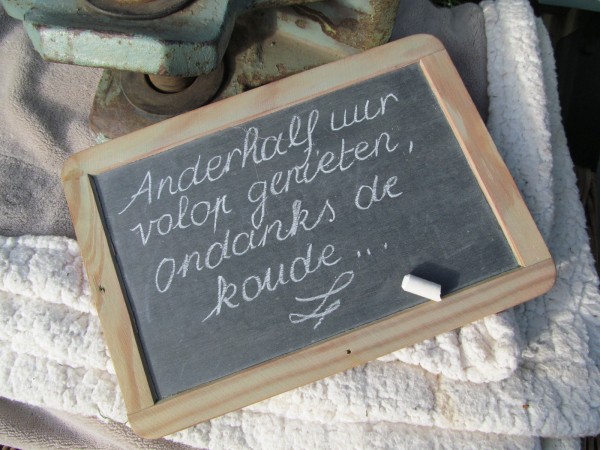 Anderhalf uur
volop genieten,
Ondanks de
koude...